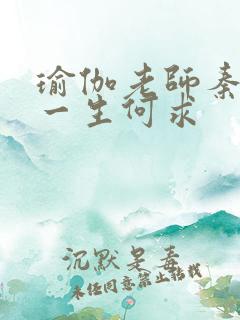 瑜伽老师秦
一生何求
沉默是毒
未经同意禁止转载